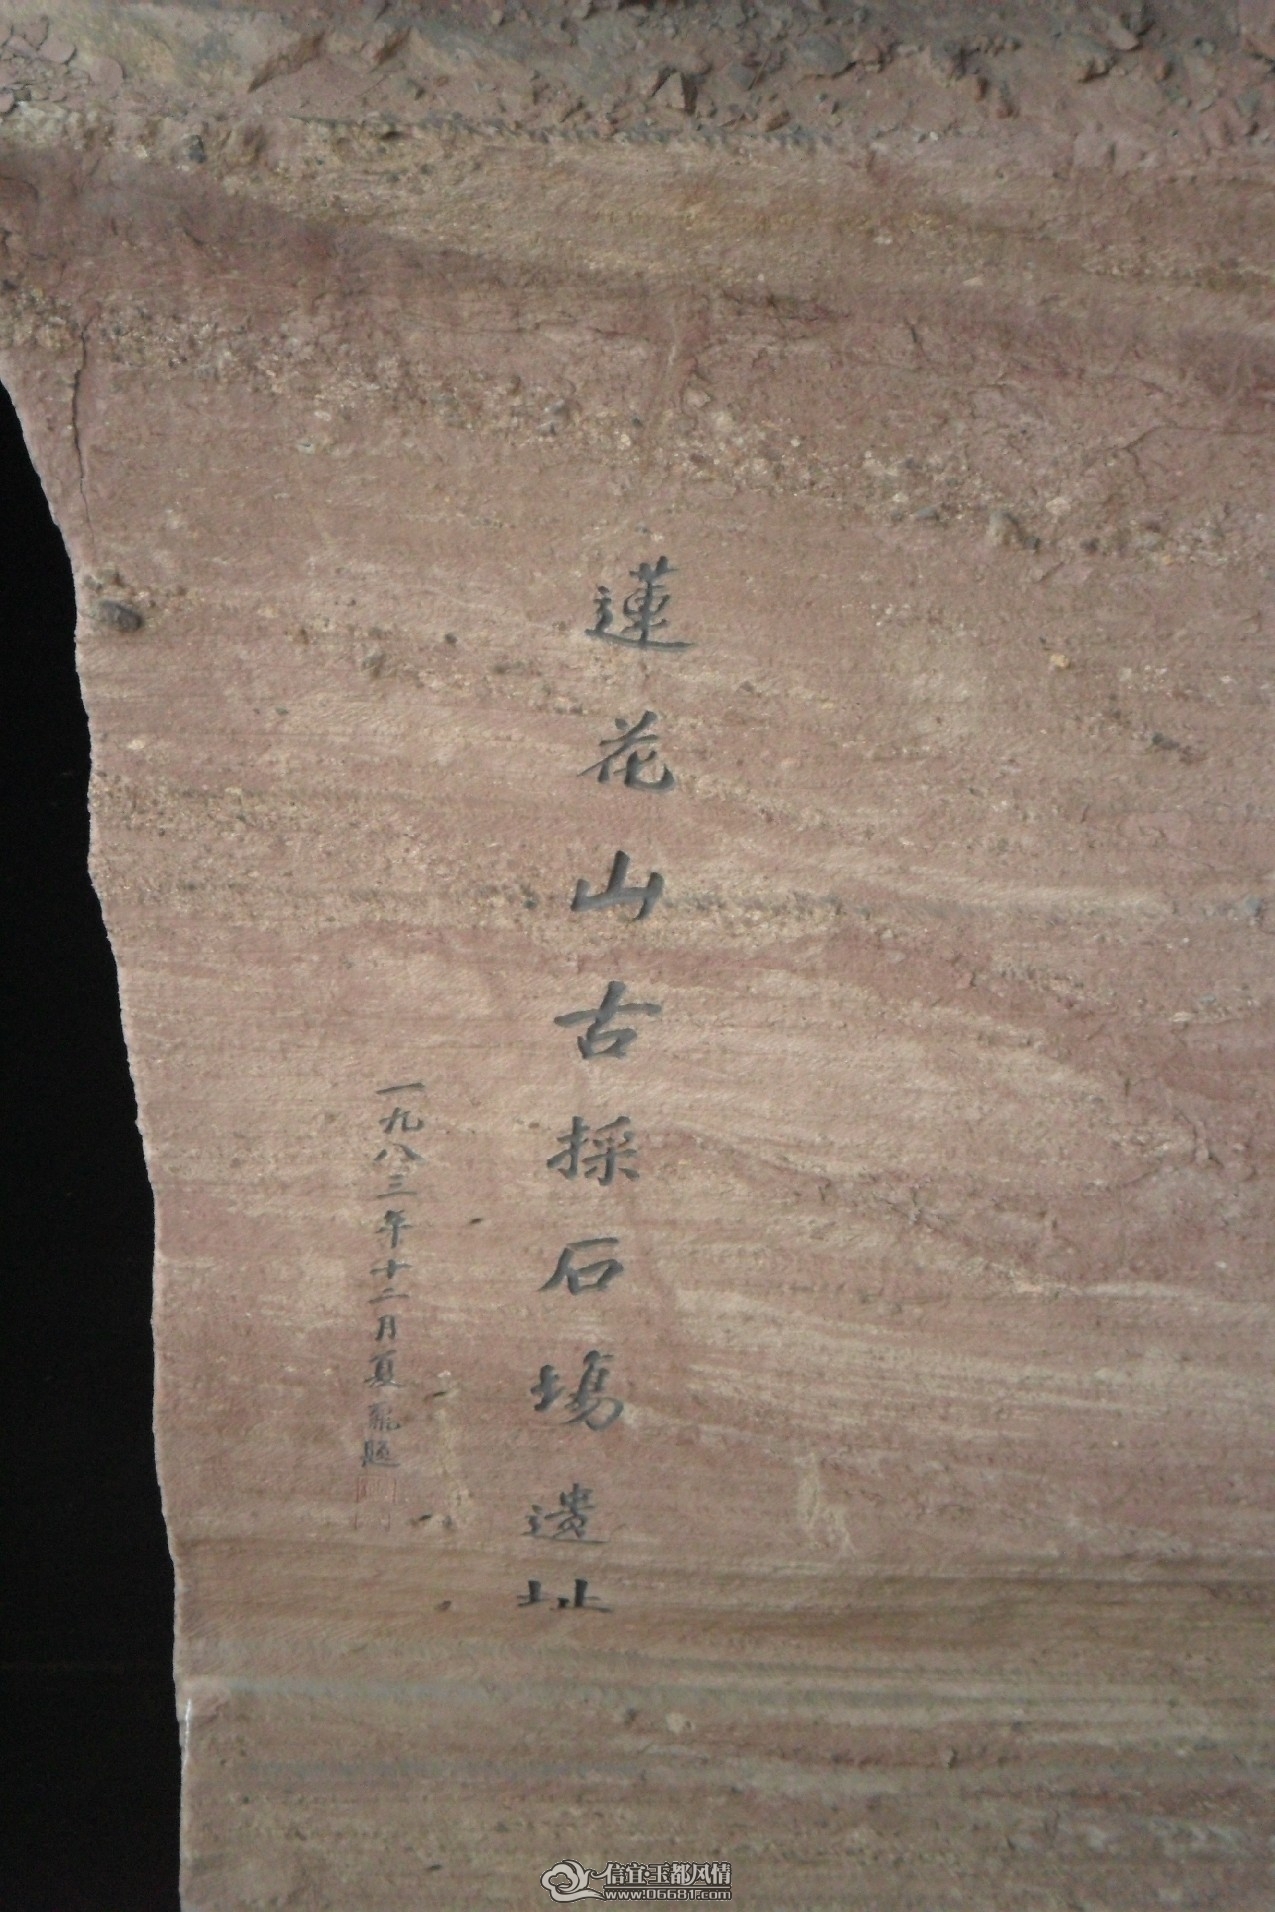 蓮花山古採石場遺址
一九八三年十二月夏鼐題
信宜·玉都风情
www.06681.com